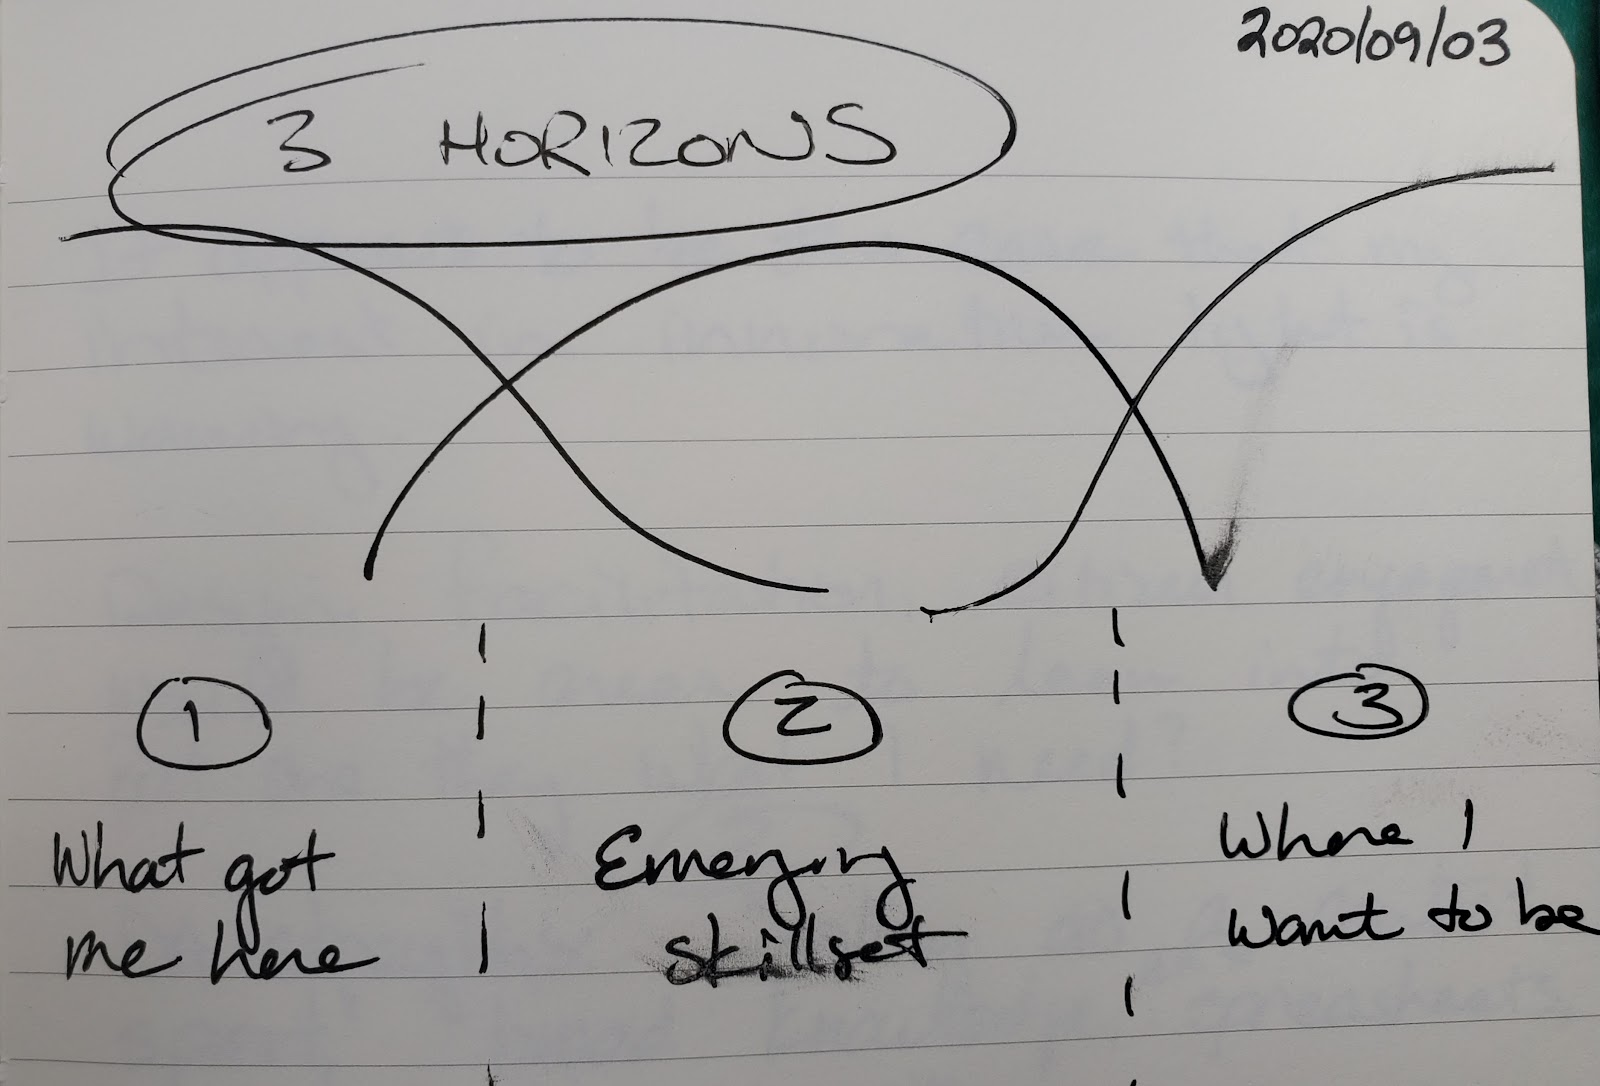 2020/09/03
3 HORIZONS
1
2
3
What got
me here
Emerging
skillset
Where I
want to be